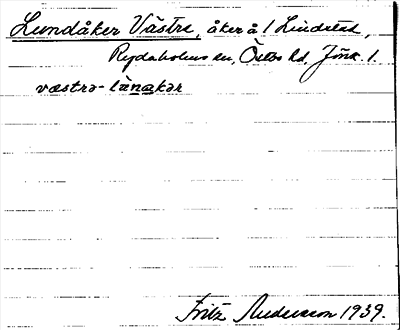 Lundåker Västra, åker å 1 Lindstad,
Rydaholms sn, Östbo hd, Jönk. l.
væstrə-lànakər
Fritz Andersson 1939.